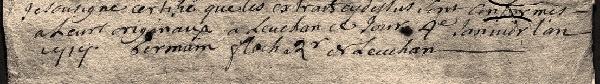 Je soussigné certifie que les extraits cy dessus sont conformes
a leurs originaux a Leuchan ce Jour 4e Janvier l'an
1717 Germain floch Rr de Leuchan